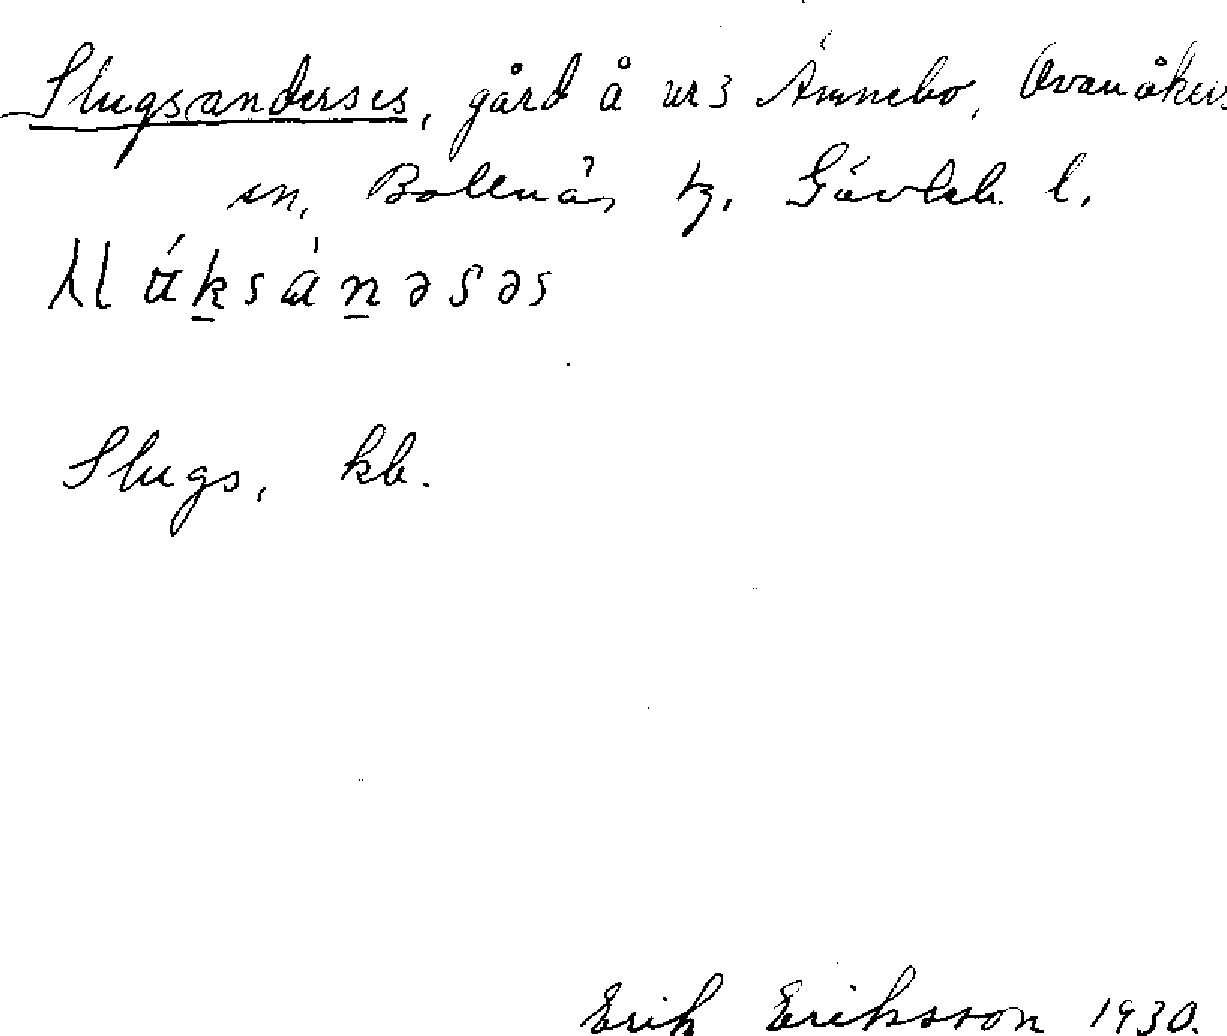 Slugsanderses, gård å nr 3 Ämnebo, Ovanåkers
sn, Bollnäs tg. Gävleb. l.
Slugs, kb.
Erik Eriksson 1930.